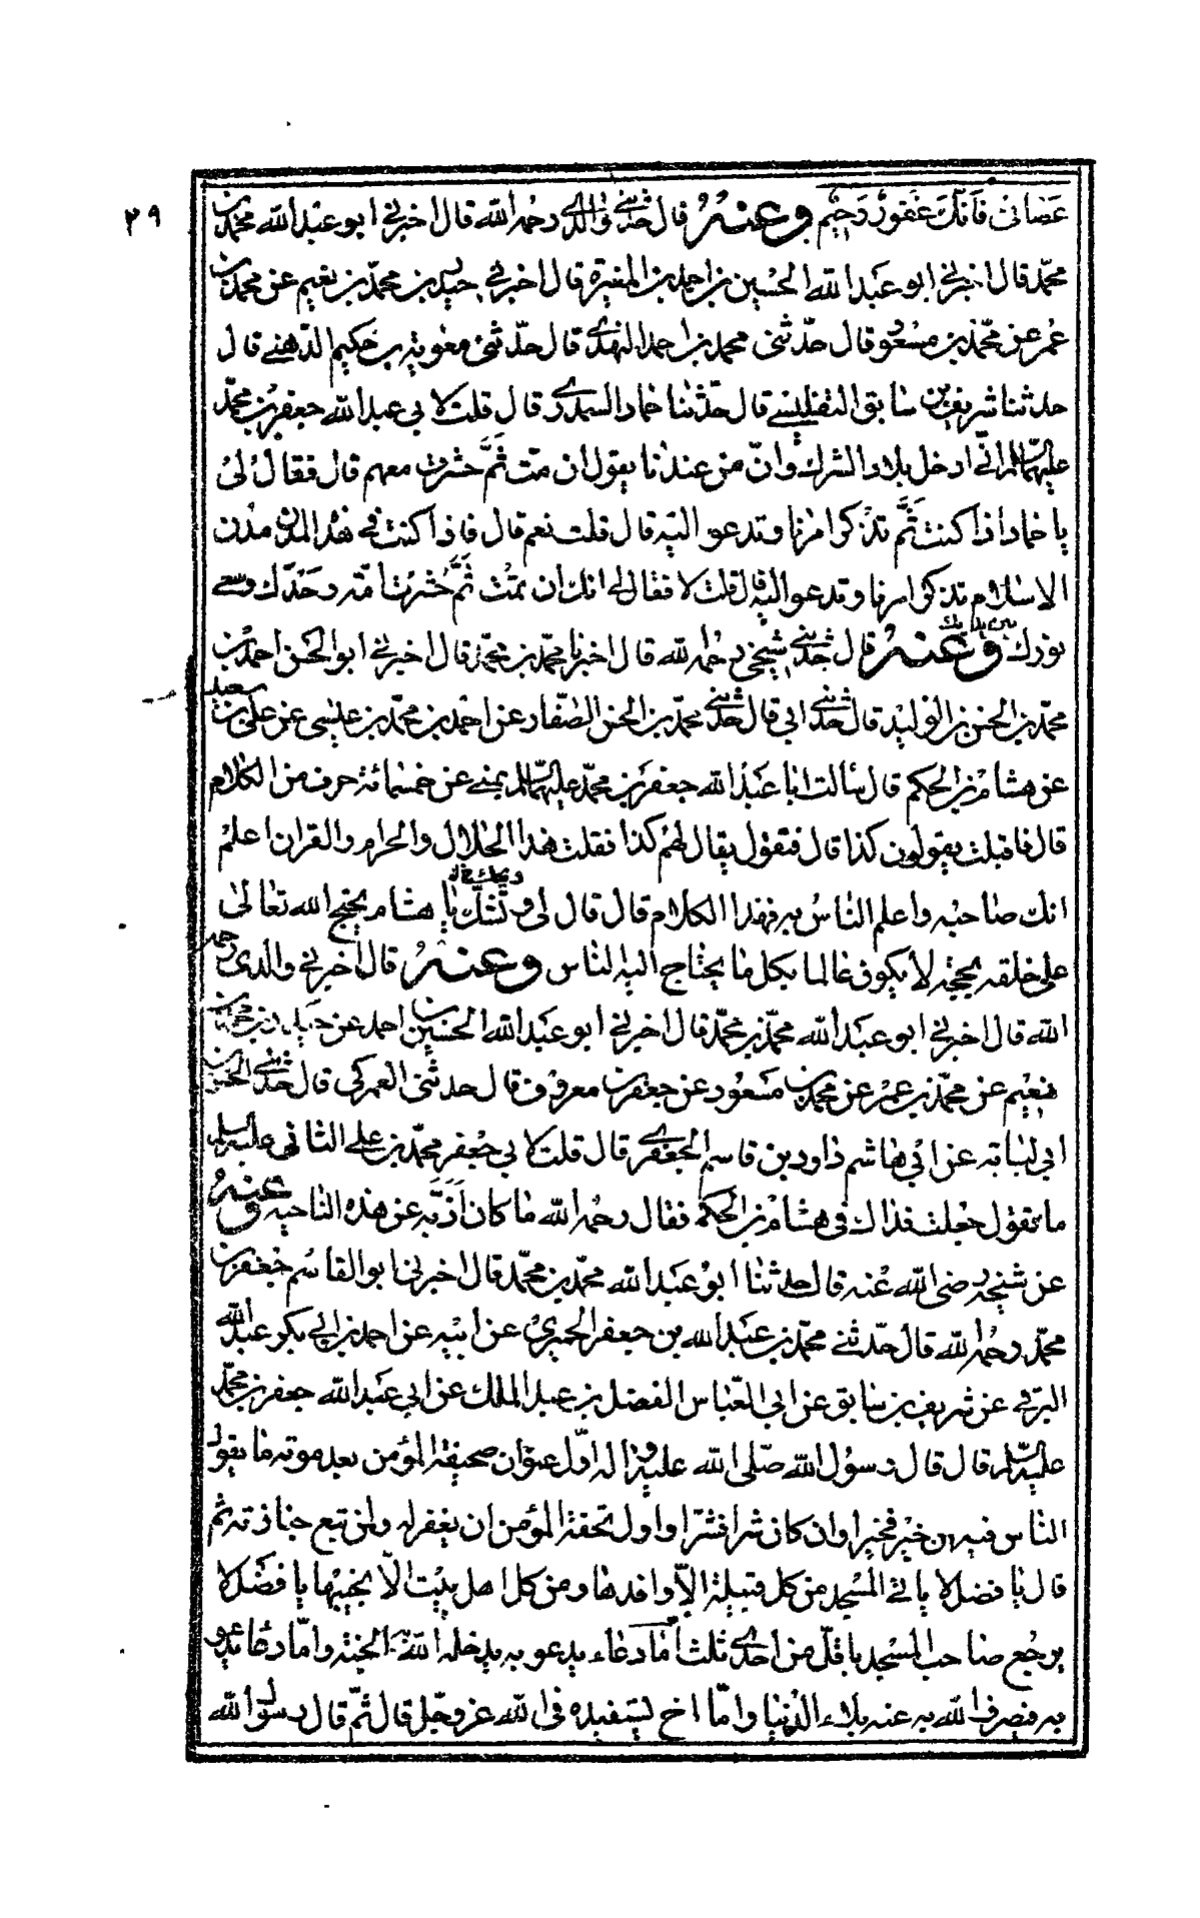 ٢٩
عصانى فانك غفور رحيم وعنه قال حدثنى والدى رحمه الله قال اخبرنى ابو عبد الله محمد بن
محمد قال اخبرنى ابو عبد الله الحسين بن احمد بن المغيرة قال اخبرنى حيدر بن محمد بن نعيم عن محمد بن
عمر عن محمد بن مسعود قال حدثنى محمد بن احمد النهدى قال حدثنى معوية بن حكيم الدهنى قال
حدثنا شريف بن سابق التفليسى قال حدثنا حماد السمدرى قال قلت لابى عبد الله جعفر بن محمد
عليهما السلام انى ادخل بلاد الشرك وان من عندنا يقول ان مت ثم حشرت معهم قال فقال لى
يا حماد اذا كنت ثم تذكر امرنا وتدعو اليه قال قلت نعم قال فاذا كنت فى هذه المدن مدن
الاسلام تذكر امرنا وتدعو اليه قال قلت لا فقال لى انك ان تمت ثم حشرت امة وحدك وسعى
نورك بين يديك وعنه قال حدثنى شيخى رحمه الله قال اخبرنا محمد بن محمد قال اخبرنى ابو الحسن احمد بن
محمد بن الحسن بن الوليد قال حدثنى ابى قال حدثنى محمد بن الحسن الصفار عن احمد بن محمد بن عيسى عن على بن سعيد
عن هشام بن الحكم قال سألت ابا عبد الله جعفر بن محمد عليهما السلم بمنى عن خمسمائة حرف من الكلام
قال فاقبلت يقولون كذا قال فتقول يقال لهم كذا فقلت هذا الحلال والحرام والقران اعلم
انك صاحبه واعلم الناس به فهذا الكلام قال قال لى وتشك يا هشام يحتج الله تعالى
على خلقه بحجة لا يكون عالما بكل ما يحتاج اليه الناس وعنه قال اخبرنى والدى رحمه
الله قال اخبرنى ابو عبد الله محمد بن محمد قال اخبرنى ابو عبد الله الحسين بن احمد عن حيدر بن محمد بن
نعيم عن محمد بن عمر عن محمد بن مسعود عن جعفر بن معروف قال حدثنى العمركى قال حدثنى الحسن بن
ابى لبابة عن ابى هاشم داود بن قاسم الجعفرى قال قلت لابى جعفر محمد بن على الثانى عليه السلم
ما تقول جعلت فداك فى هشام بن الحكم فقال رحمه الله ما كان اذبه عن هذه الناحية وعنه
عن شيخه رضى الله عنه قال حدثنا ابو عبد الله محمد بن محمد قال اخبرنى ابو القاسم جعفر بن
محمد رحمه الله قال حدثنى محمد بن عبد الله بن جعفر الحميرى عن ابيه عن احمد بن ابى بكر عبد الله
البرقى عن شريف بن سابق عن ابى العباس الفضل بن عبد الملك عن ابى عبد الله جعفر بن محمد
عليه السلم قال قال رسول الله صلى الله عليه واله اول عنوان صحيفة المؤمن بعد موته ما يقول
الناس فيه ان خير فخيرا وان كان شرا فشرا واول تحفة المؤمن ان يغفر له ولمن تبع جنازته ثم
قال يا فضل لا يأتى المسجد من كل قبيلة الا وافدها ومن كل اهل بيت الا نجيبها يا فضل لا
يرجع صاحب المسجد باقل من احدى ثلث اما دعاء يدعو به يدخله الله به الجنة واما دعا يدعو
به فيصرف الله به عنه بلاء الدنيا واما اخ ليستفيده فى الله عز وجل قال ثم قال رسول الله